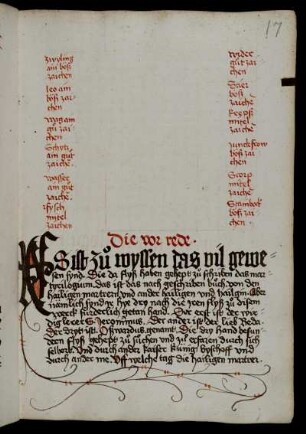 17
zwyling
ain böß
zaichen
leo am
böß zai
chen
wag am
gůt zai
chen
Schytz
am gůt
zaichē
wasser
am gůt
zaichē
visch
mitel
zaichen
wyder
gůt zai
chen
Stier
böß
zaichē
krepß
mitel
zaichē
junckfrow
böß zai
chen
Scorp
mitel
zaichē
Stainbok
böß zai
chen
Die vor rede
Es ist zů wyssen das vil gewe-
sen synd. Die da flyß haben gehept zů schriben das mar-
tyrilogium. Das ist das nach geschriben bůch von den
hailigen martrern und ander hailigen und hailgin. Aber
namlich synd ir drey die
werck fürderlich getan hand. Der erst ist der wir-
dig lerer S Jeronimus. Der ander ist der lerer Beda
Der dryt ist Uswardus genant. Die dry hand besun-
dern flyß gehept zů suchen und zů erfaren durch sich
selbers. Und durch ander kaiser künig byschoff und
durch ander me. Uff welche tag die hailigen martrer